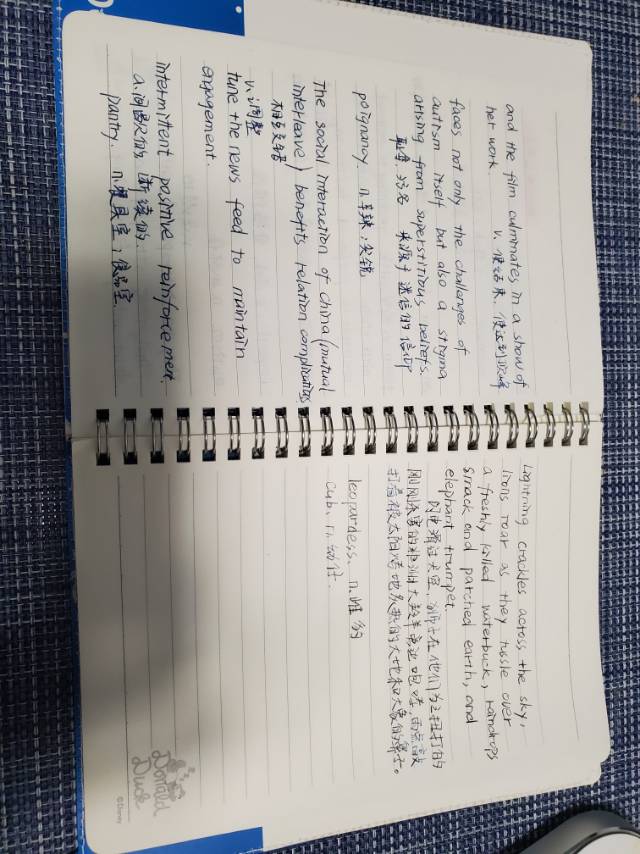 and the film culminates in a show of
her work. v. 使结果, 使达到顶峰
faces not only the challenges of
autism itself but also a stigma
arising from superstitious beliefs.
耻辱. 污名 来源于 迷信的 信仰
poignancy n.辛辣.尖锐
The social interaction of china (mutual
interleave) benefits relation complications
相互交错
v.调整
tune the news feed to maintain
engagement.
intermittent positive reinforcement.
a.间歇的 断续的.
parity. n.
Lightning crackles across the sky,
lions roar as they tussle over
a freshly killed waterbuck, raindrops
smack and parched earth, and
elephant trumpet
闪电滑过天空, 狮子在他们为之扭打的
刚刚杀害的非洲大羚羊旁边咆哮, 雨点敲
打着被太阳烤地炙热的大地和大象的鼻子。
leopardess. n.雌豹
cub. n.幼仔.
Donald
Duck
©Disney